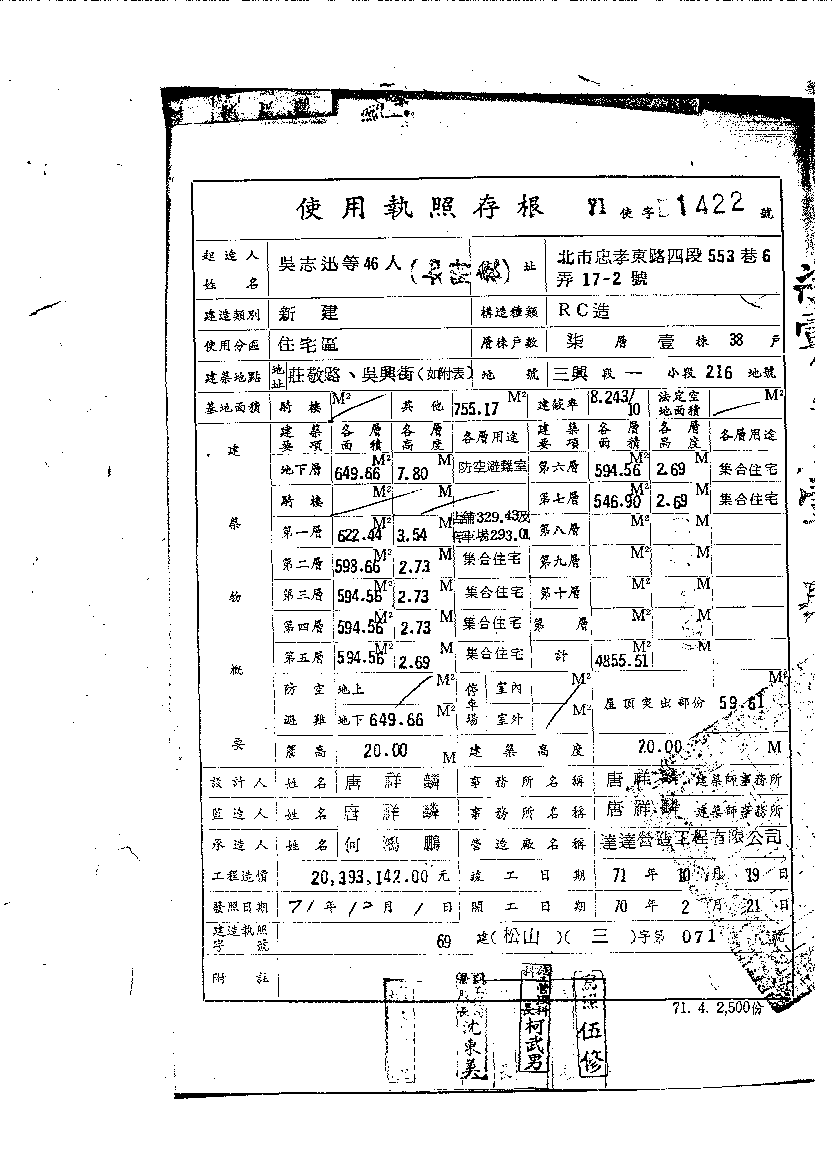 使用執照存根 71 使字 1422 號
起造人姓名 吳志迅等46人(如附 ) 址 北市忠孝東路四段553巷6弄17-2號
建造類別 新建 構造種類 RC造
使用分區 住宅區 層棟戶數 柒層壹棟38戶
建築地點 地址 莊敬路、吳興街(如附表) 地號 三興段一小段216地號
基地面積 騎樓 M² 其他 755.17 M² 建蔽率 8.243/10 法定空地面積 M²
建築物概要 建築要項 各層面積 各層高度 各層用途 建築要項 各層面積 各層高度 各層用途
地下層 649.66 M² 7.80 M 防空避難室 第六層 594.56 M² 2.69 M 集合住宅
騎樓 M² M 第七層 546.90 M² 2.69 M 集合住宅
第一層 622.44 M² 3.54 M 店舖329.43及停車場293.01 第八層 M² M
第二層 598.66 M² 2.73 M 集合住宅 第九層 M² M
第三層 594.56 M² 2.73 M 集合住宅 第十層 M² M
第四層 594.56 M² 2.73 M 集合住宅 第 層 M² M
第五層 594.56 M² 2.69 M 集合住宅 計 4855.51 M² M
防空避難 地上 M² 停車場 室內 M² 屋頂突出部份 59.61 M²
地下 649.66 M² 室外 M²
簷高 20.00 M 建築高度 20.00 M
設計人 姓名 唐祥麟 事務所名稱 唐祥麟 建築師事務所
監造人 姓名 唐祥麟 事務所名稱 唐祥麟 建築師事務所
承造人 姓名 何鴻鵬 營造廠名稱 達達營造工程有限公司
工程造價 20,393,142.00元 竣工日期 71年10月19日
發照日期 71年12月1日 開工日期 70年2月21日
建造執照字號 69 建(松山)(三)字第071 號
附註
71.4.2,500份
沈東美
柯武男
伍修